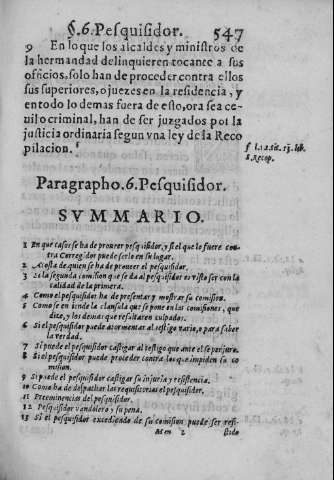 §.6.Pesquisidor. 547
9 En lo que los alcaldes y ministros de
la hermandad delinquieren tocante a sus
officios, solo han de proceder contra ellos
sus superiores, o juezes en la residencia, y
en todo lo demas fuera de esto, ora sea ce-
uil o criminal, han de ser juzgados por la
justicia ordinaria segun vna ley de la Reco
pilacion. f
f l.12.tit.13.lib.
8.Recop.
Paragrapho.6.Pesquisidor.
SVMMARIO.
1 En que casos se ha de proueer pesquisidor, y si el que lo fuere con-
tra Corregidor puede serlo en su lugar.
2 A costa de quien se ha de proueer el pesquisidor.
3 Si la segunda comission que se da al pesquisidor es visto ser con la
calidad de la primera.
4 Como el pesquisidor ha de presentar y mostrar su comission.
5 Como se entiende la clausula que se pone en las comisiones, que
dize, y los demas que resultaren culpados.
6 Si el pesquisidor puede atormentar al testigo vario, o para saber
la verdad.
7 Si puede el pesquisidor castigar al testigo que ante el se perjura.
8 Si el pesquisidor puede proceder contra los que impiden su co
mision.
9 Si puede el pesquisidor castigar su injuria y resistencia.
10 Como ha de despachar las requisitorias el pesquisidor.
11 Preeminencias del pesquisidor.
12 Pesquisidor vandolero y su pena.
13 Si el pesquisidor excediendo de su comision puede ser resi-
Mm 2 stido